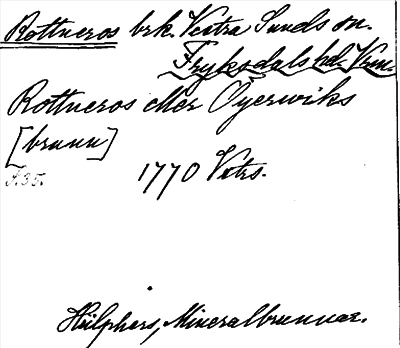 Rottneros brk. Västra Sunds sn.
Fryksdals hd. Vrm.
Rottneros eller Öyerwiks
[brunn]
s. 35.
1770 Vetrs.
Hülphers, Mineralbrunnar.